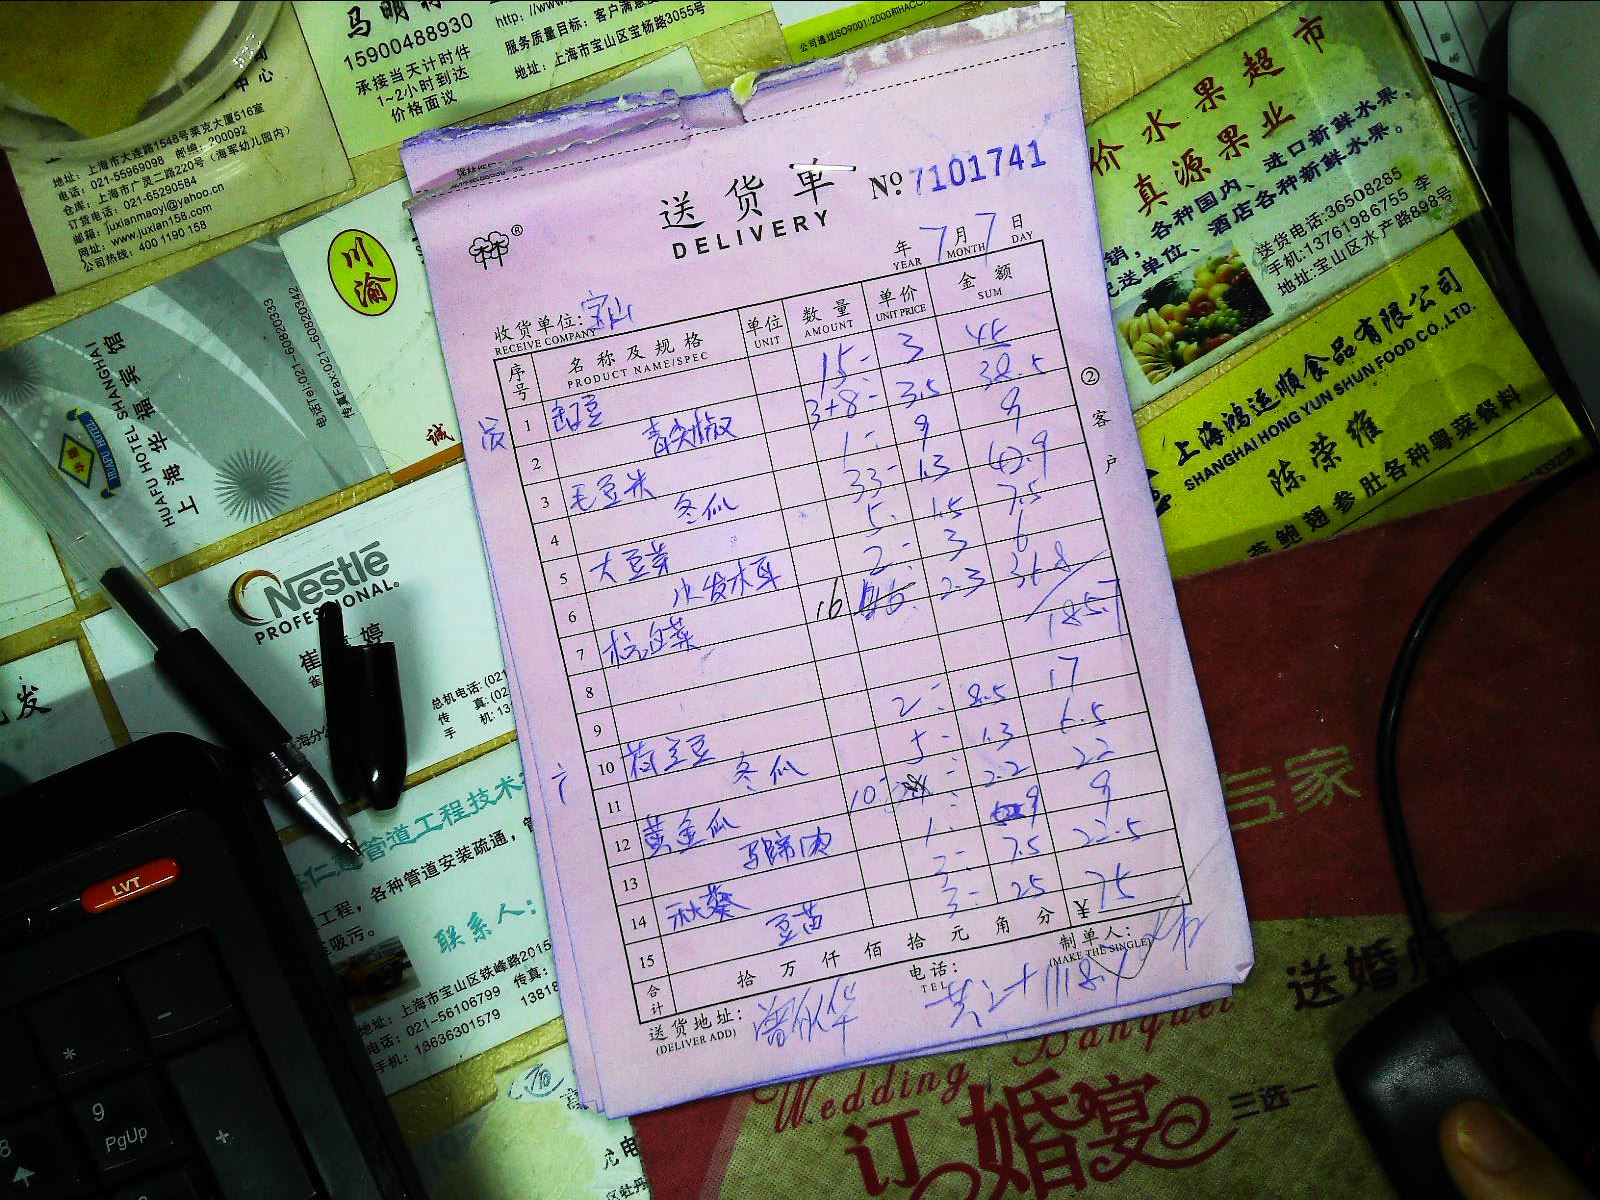 马明
15900488930
承接当天计时件
1~2小时到达
价格面议
http://www.
服务质量目标：客户满意
地址：上海市宝山区宝杨路3055号
公司通过ISO9001:2000和HACC
中心
地址：上海市大连路1548号莱克大厦516室
电话：021-55969098 邮编：200092
仓库：上海市广灵二路220号（海军幼儿园内）
订货电话：021-65290584
邮箱：juxianmaoyi@yahoo.cn
网址：www.juxian158.com
公司热线：400 1190 158
川渝
诚
HUAFU HOTEL
HUAFU HOTEL SHANGHAI
上海华福宾馆
电话Tel:021-60820333
传真Fax:021-60820342
Nestlé
PROFESSIONAL®
崔 婷
总机电话：(021
传 真：(02
手 机：13
管道工程技术
各种管道安装疏通，管
工程，
吸污。
联系人：
地址：上海市宝山区铁峰路2015
电话：021-56106799 传真：
手机：13636301579 13818
价水果超市
真源果业
销，各种国内、进口新鲜水果，
配送单位、酒店各种新鲜水果。
送货电话:36508285
手机:13761986755 李
地址:宝山区水产路898号
上海鸿运顺食品有限公司
SHANGHAI HONG YUN SHUN FOOD CO.,LTD.
陈荣雍
燕鲍翅参肚各种粤菜餐料
送货单
DELIVERY
№ 7101741
®
年 7 月 7 日
YEAR MONTH DAY
收货单位：宝山
RECEIVE COMPANY
序号 名称及规格 单位 数量 单价 金额
PRODUCT NAME/SPEC UNIT AMOUNT UNIT PRICE SUM
1 豇豆 15- 3 45
2 青尖椒 3+8- 3.5 38.5
3 毛豆米 1- 9 9
4 冬瓜 33- 1.3 42.9
5 大豆芽 5- 1.5 7.5
6 水发木耳 2- 3 6
7 杭白菜 16 2.3 36.8
8 185.7
9
10 荷兰豆 2- 8.5 17
11 冬瓜 5- 1.3 6.5
12 黄金瓜 10- 2.2 22
13 马蹄肉 1- 9 9
14 秋葵 3- 7.5 22.5
15 豆苗 3- 25 75
合计 拾 万 仟 佰 拾 元 角 分 ¥
②
客户
送货地址：
(DELIVER ADD)
电话：
TEL
制单人：
(MAKE THE SINGLE)
LVT
*
-
9
PgUp
8
+
专家
送婚
Wedding Banquet
订婚宴
三选一